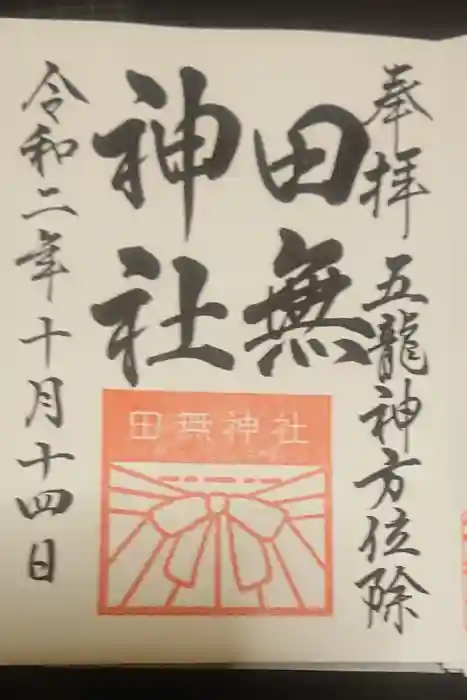 奉拝 五龍神方位除
田無
神社
田無神社
令和二年十月十四日